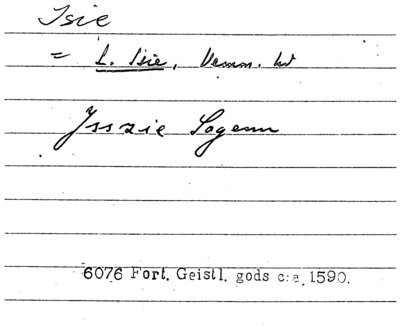 Isie
= L. Isie, Vemm. hd
Isszie Sogenn
6076 Fort. Geistl. gods c:a 1590.